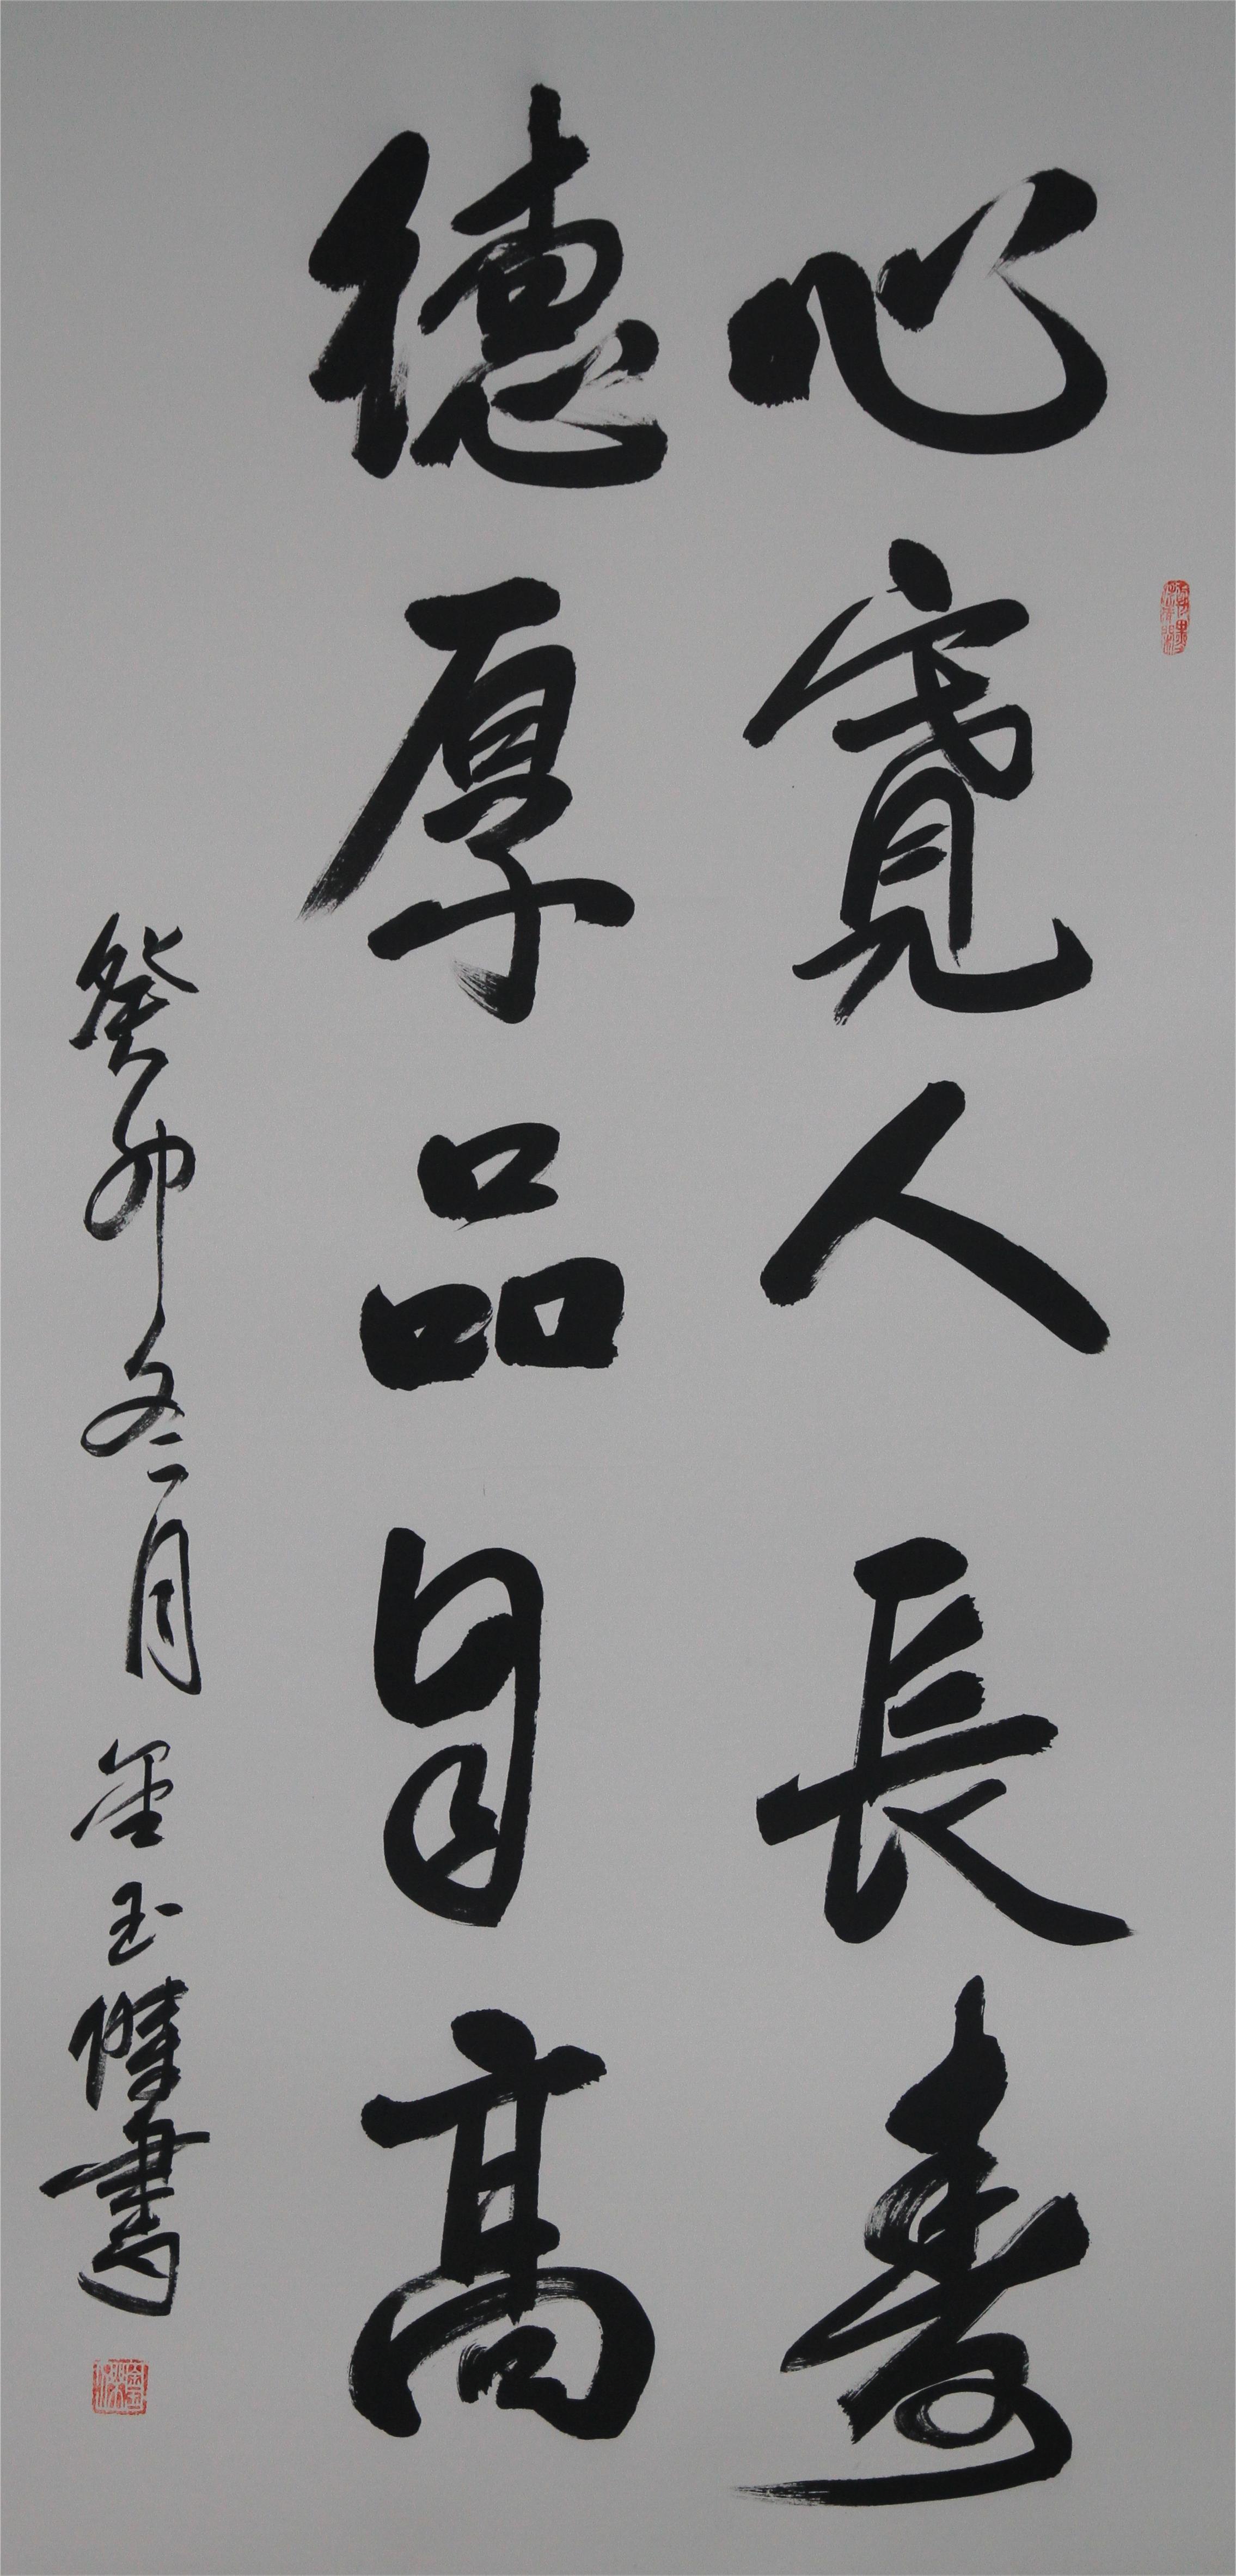 心寬人長壽
德厚品自高
癸卯冬月金玉傑書